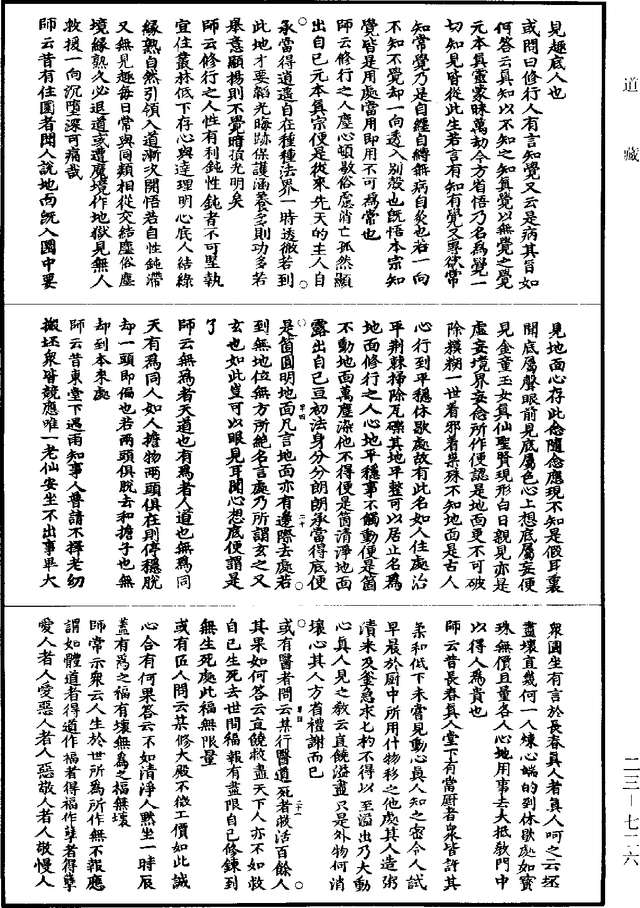 見趣底人也
或問曰修行人有言知覺又云是病其旨如
何答云真知以不知之知真覺以無覺之覺
元本真靈蒙昧萬劫今方省悟乃名為覺一
切知見皆從此生若言有知有覺又專欲常
知常覺乃是自纏自縛無病自灸也若一向
不知不覺却一向透入別殼也既悟本宗知
覺皆是用處當用即用不可為常也
師云修行之人塵心頓歇俗慮消亡孤然顯
出自己元本真宗便是從來先天的主人自
承當得逍遙自在種種法界一時透徹若到
此地才要韜光晦跡保護涵養多則功多若
舉意顯揚則不覺時損光明矣
師云修行之人性有利鈍性鈍者不可堅執
宜住叢林低下存心與達理明心底人結緣
緣熟自然引領入道漸次開悟若自性鈍滯
又無見趣每日常與同類相從交結塵俗塵
境緣熟久必退道或遭魔境作地獄見無人
救援一向沉墮深可痛哉
師云昔有住圜者聞人說地面既入圜中要
見地面心存此念隨念應現不知是假耳裏
聞底屬聲眼前見底屬色心上想底屬妄便
見金童玉女真仙聖賢現形白日親見亦是
虛妄境界妄念所作便認是地面更不可破
除摸糊一世着邪着祟殊不知地面是古人
心行到平穩休歇處故有此名如人住處治
平荊棘掃除瓦礫其地平整可以居止名為
地面修行之人心地平穩事不觸動便是箇
不動地面萬塵染他不得便是箇清淨地面
露出自己亘初法身分分朗朗承當得底便
是箇圓明地面凡言地面亦有邊際去處若
到無地位無方所絶名言處乃所謂玄之又
玄也如此豈可以眼見耳聞心想底便謂是
了
師云無為者天道也有為者人道也無為同
天有為同人如人擔物兩頭俱在則停穩脫
却一頭即偏也若兩頭俱脫去和擔子也無
却到本來處
師云昔東堂下遇雨知事人普請不擇老幼
搬坯衆皆競應唯一老仙安坐不出事畢大
衆圜坐有言於長春真人者真人呵之云坯
盡壞直幾何一人煉心端的到休歇處如寶
珠無價且量各人心地用事去大抵教門中
以得人為貴也
師云昔長春真人堂下有當厨者衆皆許其
柔和低下未嘗見動心真人知之密令人試
早晨於厨中所用什物移之他處其人造粥
漬米及釜急求七杓不得以至溢出乃大動
心真人見之教云直饒溢盡只是外物何消
壞心其人方省禮謝而已
或有醫者問云某行醫道死者救活百餘人
其果如何答云直饒救盡天下人亦不如救
自己生死去世間福報有盡限自已修鍊到
無生死處此福無限量
或有匠人問云某修大殿不徵工價如此誠
心合有何果答云不如清淨人黙坐一時辰
蓋有為之福有壞無為之福無壞
師常示衆云人生於世所為所作無不報應
謂如體道者得道作福者得福作孽者得孽
愛人者人愛惡人者人惡敬人者人敬慢人
道藏
二三—七二六